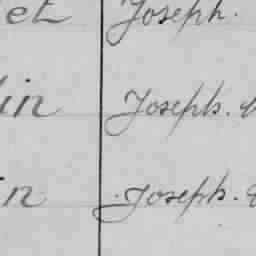 et Joseph.
in Joseph.
in Joseph.